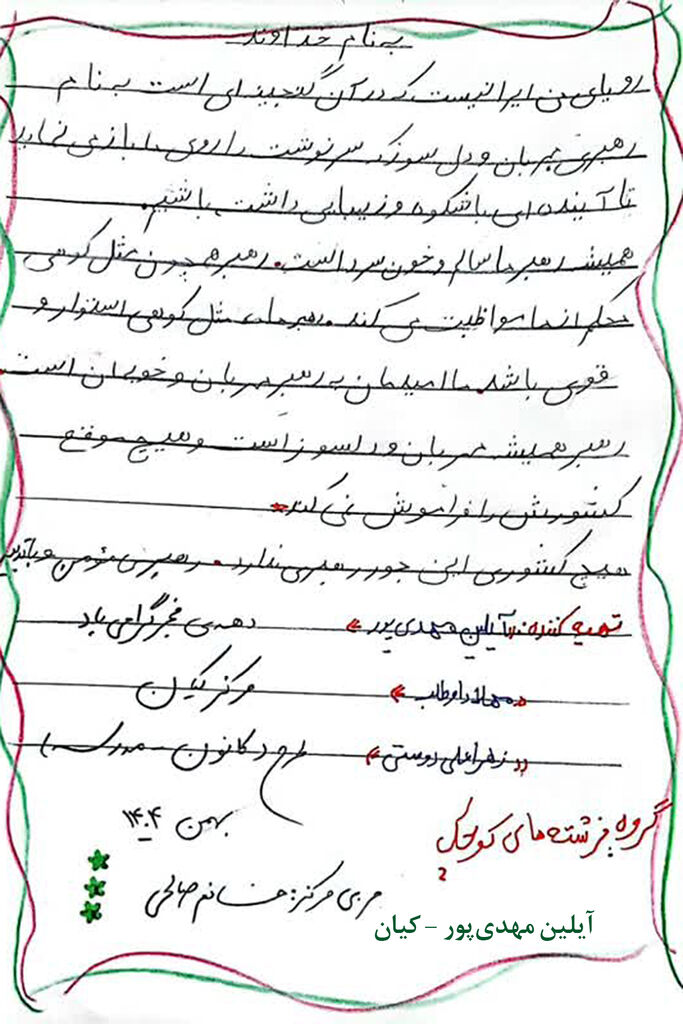 به نام خداوند
رویای من ایرانیست که در آن گنجینه ای است به نام
رهبری مهربان و دل سوز که سرنوشت را روی ما باز می نماید
تا آینده ای باشکوه و زیبایی داشته باشیم.
همیشه رهبر ما سالم و خون سرد است. رهبر همچون مثل کوهی
محکم از ما مواظبت می کند. رهبر ما، مثل کوهی استوار و
قوی باشد. ما امیدمان به رهبر مهربان و خوبمان است.
رهبر همیشه مهربان و دلسوز است و هیچ موقع
کشورش را فراموش نمی کند.
هیچ کشوری این جور رهبری ندارد. رهبری مؤمن و
تهیه کننده: آیلین مهدی پور» دهه ی فجر گرامی باد
«مهلا دامطلب» مرکز کیان
«زهرا علی دوستی» طرح کانون - مدرسه
بهمن ۱۴۰۴ گروه فرشته های کوچک
مربی مرکز: خانم صالحی
آیلین مهدی‌پور - کیان